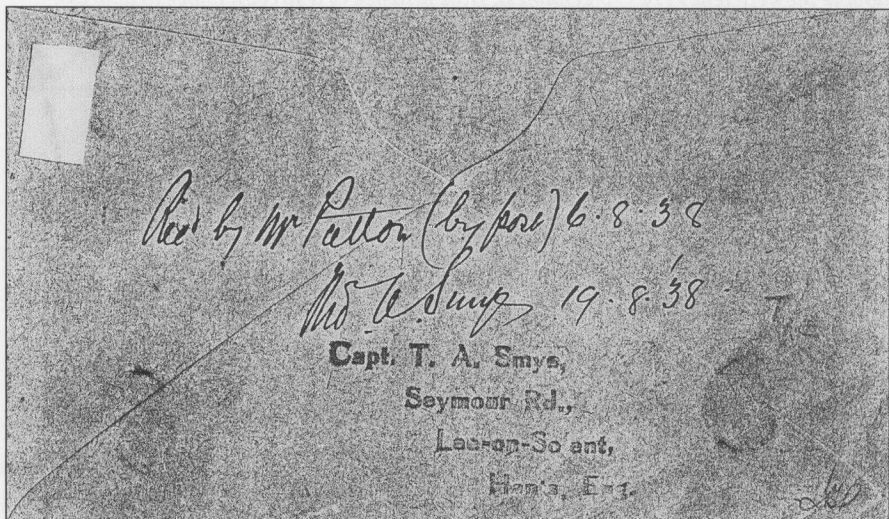 Recd by Mr Patton (by post) 6.8.38
Thos. A. Smye 19.8.'38
Capt. T. A. Smye,
Seymour Rd.,
Lee-on-Solent,
Hants, Eng.